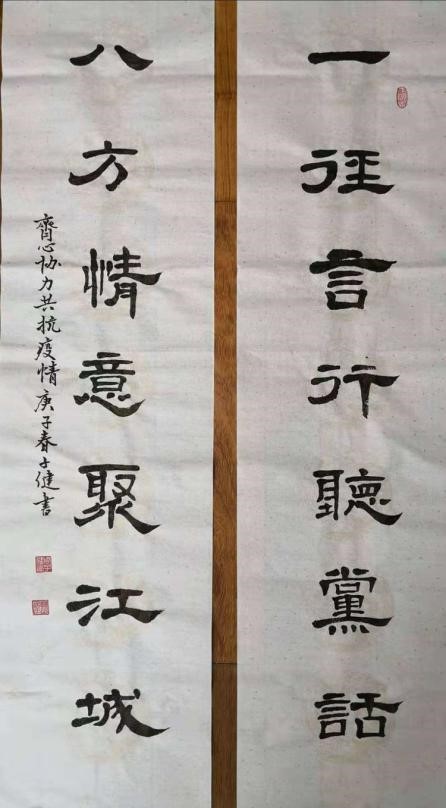 一径言行聽黨話
八方情意聚江城
齊心协力共抗疫情庚子春子健書